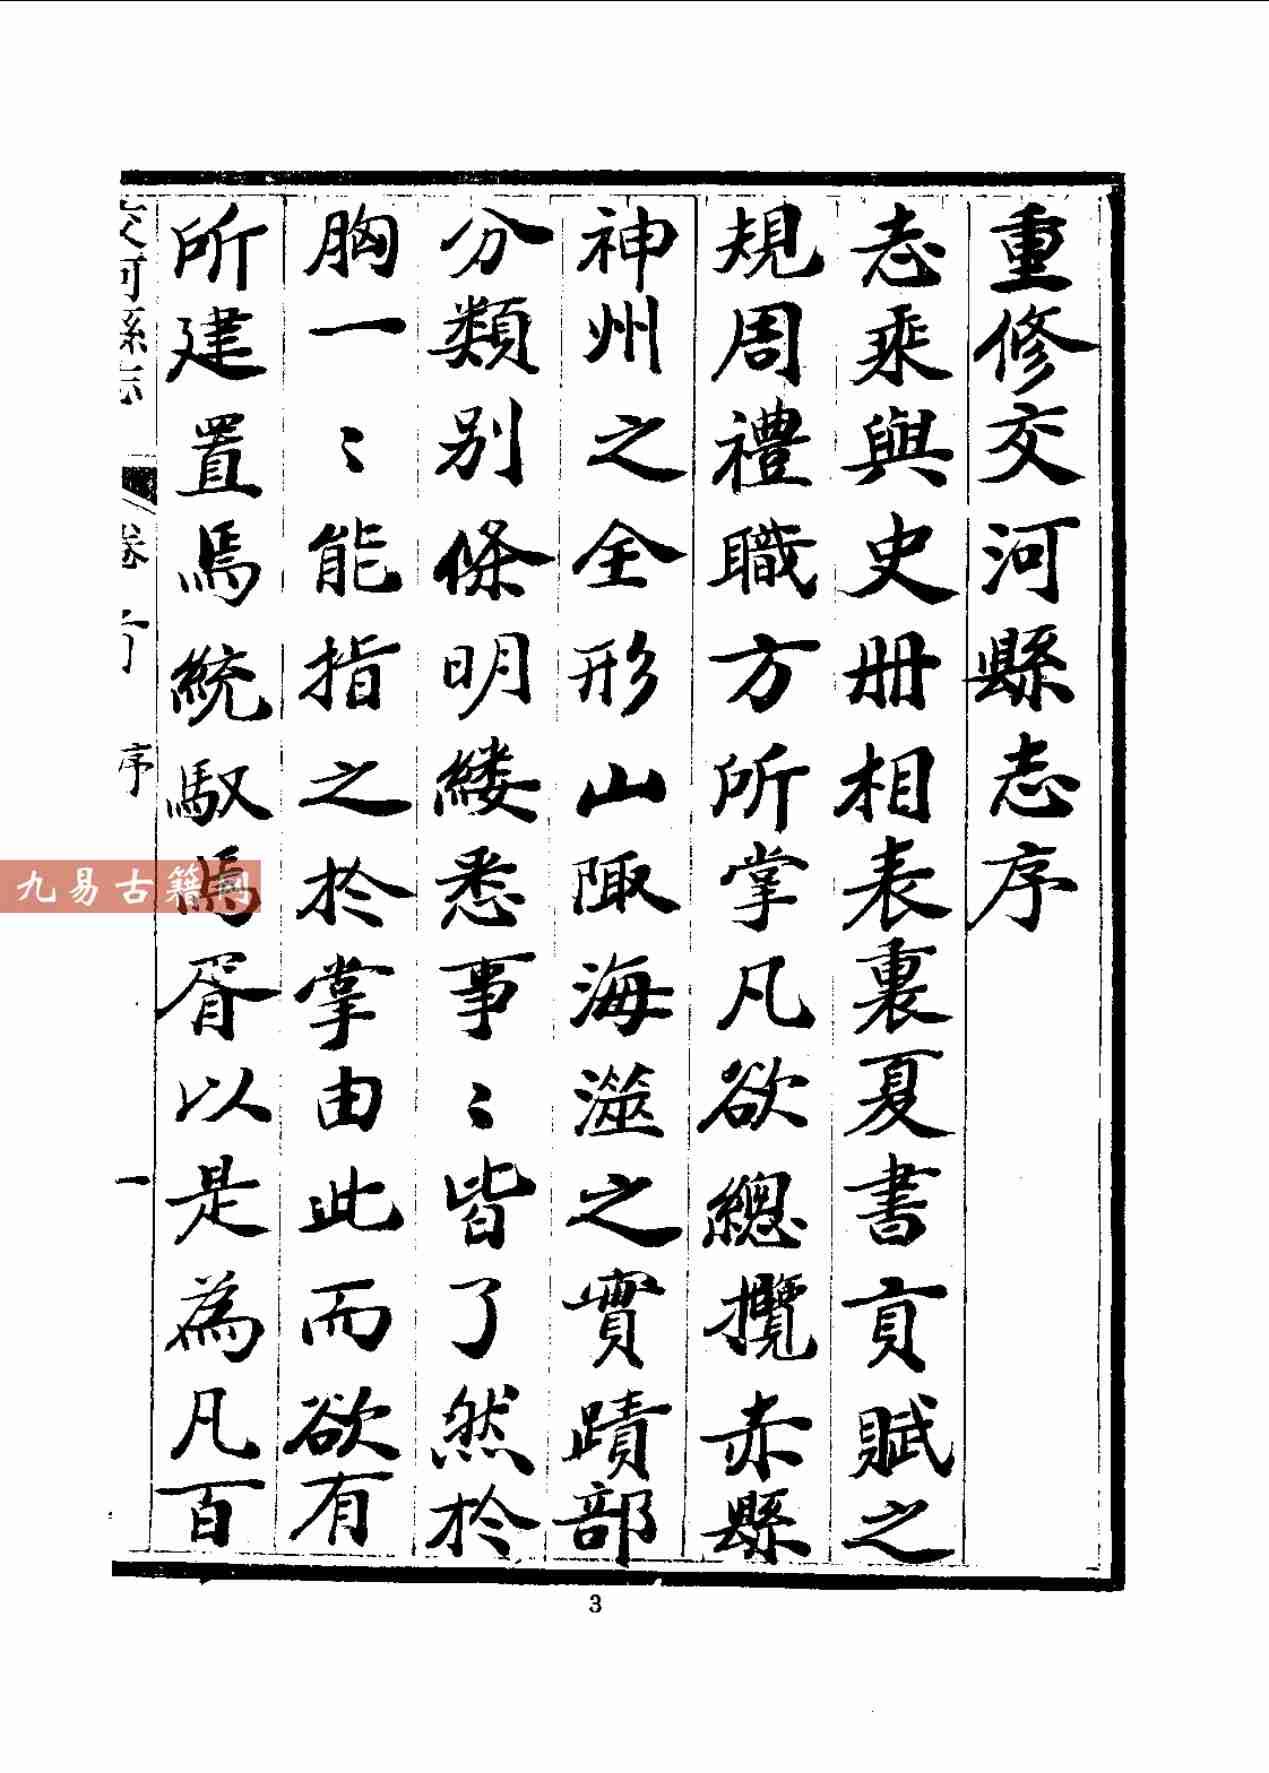 重修交河縣志序
志乘與史册相表裏夏書貢賦之
規周禮職方所掌凡欲總攬赤縣
神州之全形山陬海澨之實蹟部
分類别條明縷悉事〻皆了然於
胸一〻能指之於掌由此而欲有
所建置焉統馭焉胥以是為凡百
交河縣志 卷首 序 一
九易古籍网
3